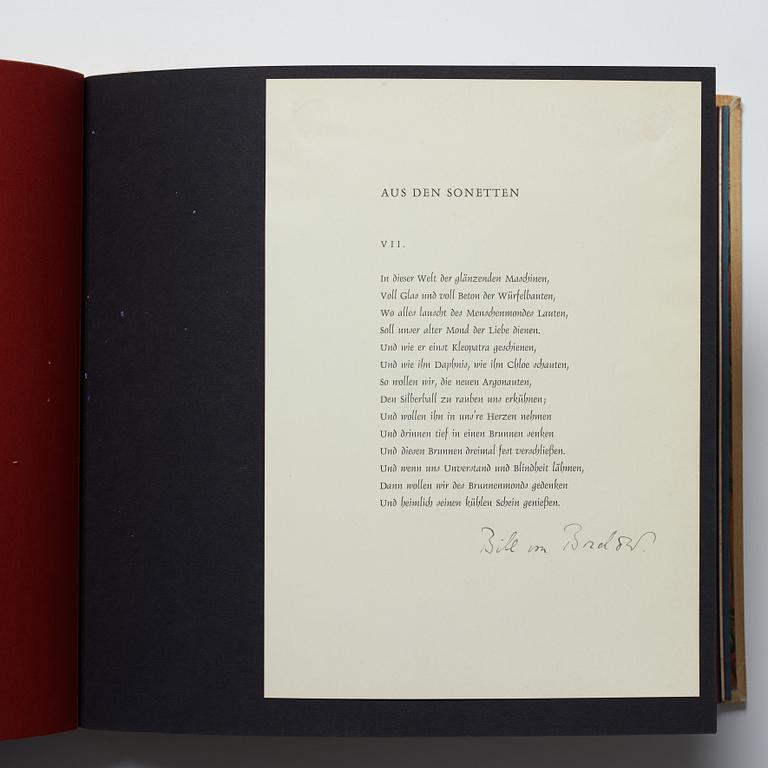 AUS DEN SONETTEN
VII.
In dieser Welt der glänzenden Maschinen,
Voll Glas und voll Beton der Würfelbauten,
Wo alles lauscht des Menschenmondes Lauten,
Soll unser alter Mond der Liebe dienen.
Und wie er einst Kleopatra geschienen,
Und wie ihn Daphnis, wie ihn Chloe schauten,
So wollen wir, die neuen Argonauten,
Den Silberball zu rauben uns erkühnen;
Und wollen ihn in uns're Herzen nehmen
Und drinnen tief in einen Brunnen senken
Und diesen Brunnen dreimal fest verschließen.
Und wenn uns Unverstand und Blindheit lähmen,
Dann wollen wir des Brunnenmonds gedenken
Und heimlich seinen kühlen Schein genießen.
Bill von Bredow.